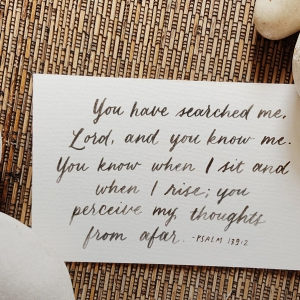 You have searched me,
Lord, and you know me.
You know when I sit and
when I rise; you
perceive my thoughts
from afar. -PSALM 139:2